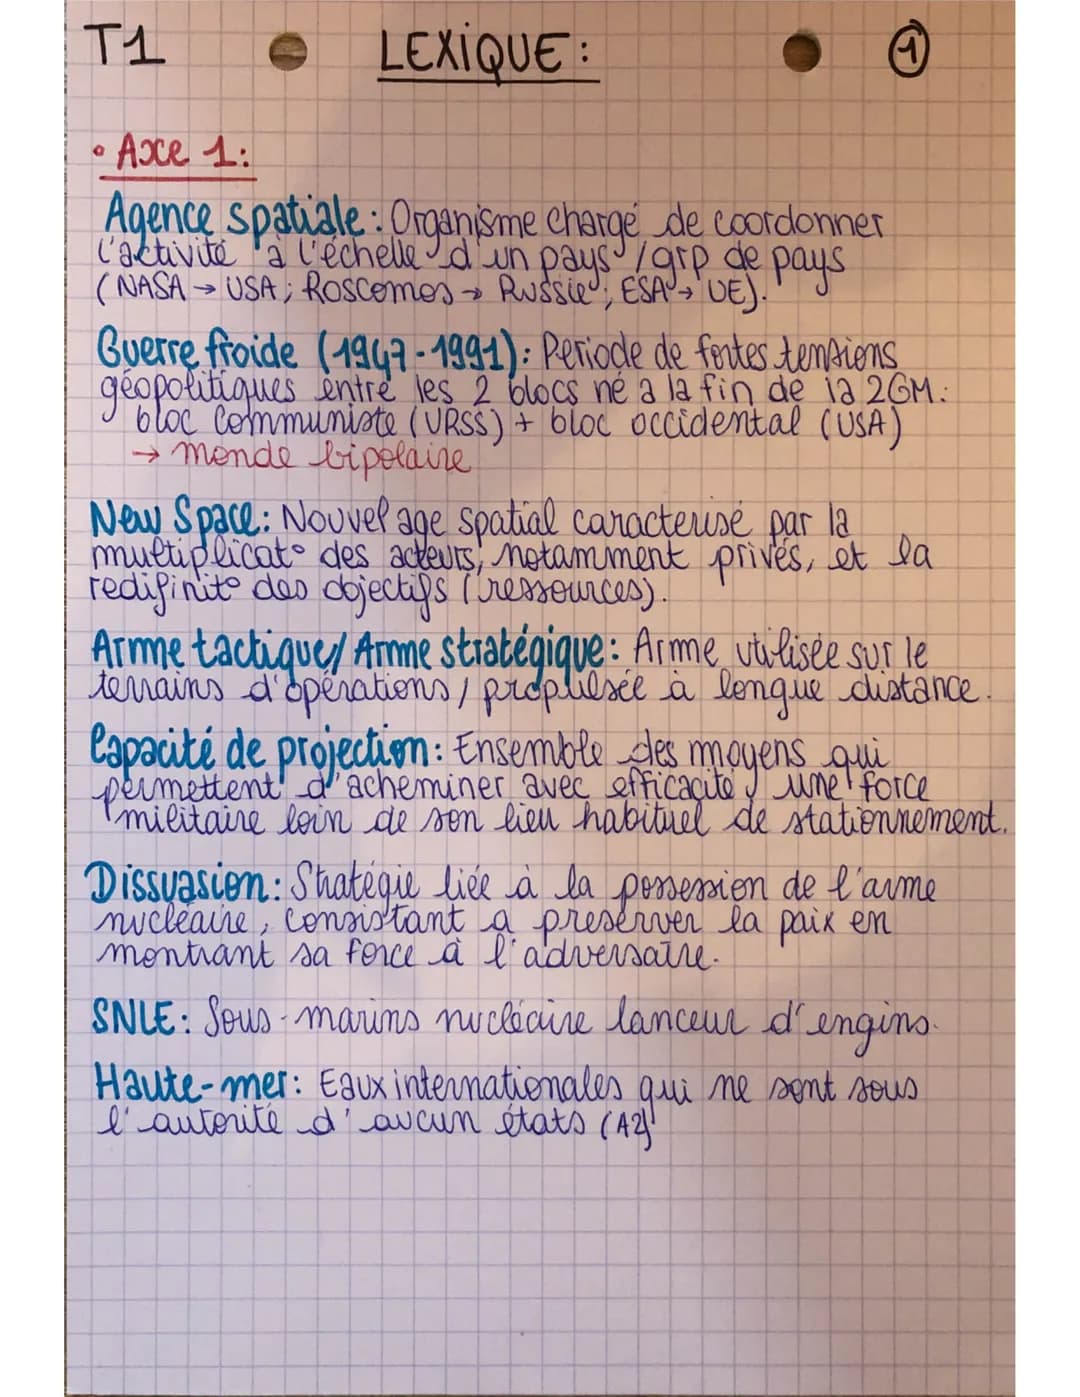 T1 LEXIQUE: 1
• Axe 1:
Agence spatiale: Organisme chargé de coordonner
l'activité à l'échelle d'un pays /grp de pays
(NASA → USA; Roscomos → Russie; ESA → UE).
Guerre froide (1947-1991): Periode de fortes tensions
géopolitiques entre les 2 blocs né a la fin de la 2GM:
bloc Communiste (URSS) + bloc occidental (USA)
→ monde bipolaire
New Space: Nouvel age spatial caracterisé par la
multiplicat° des acteurs, notamment privés, et la
redifinit° des objectifs (ressources).
Arme tactique/ Arme stratégique: Arme utilisée sur le
terrains d'opérations / propulsée à longue distance.
Capacité de projection: Ensemble des moyens qui
permettent d'acheminer avec efficacité, une force
militaire loin de son lieu habituel de stationnement.
Dissuasion: Stratégie liée à la possession de l'arme
nucléaire, consistant a preserver la paix en
montrant sa force à l'adversaire.
SNLE: Sous-marins nucléaire lanceur d'engins.
Haute-mer: Eaux internationales qui ne sont sous
l'autorité d'aucun états (A2)